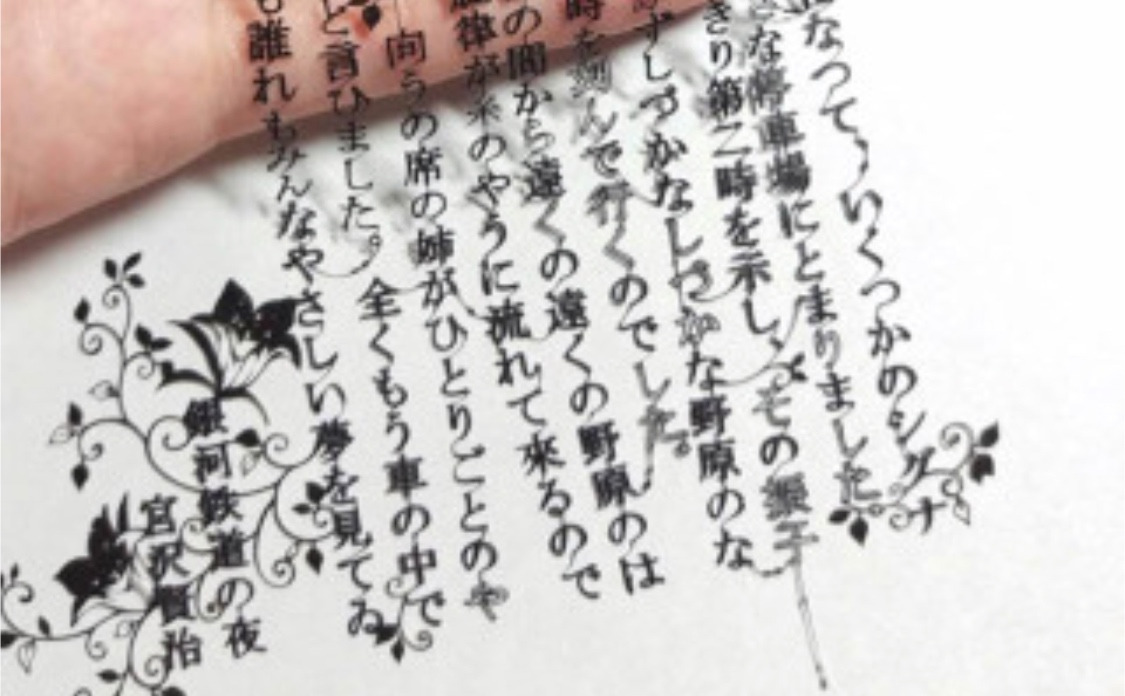 なつて、いくつかのシグナ
な停車場にとまりました。
きり第二時を示し、その振子
ずしづかなしづかな野原のな
時を刻んで行くのでした。
の間から遠くの遠くの野原のは
旋律が糸のやうに流れて来るので
向うの席の姉がひとりごとのや
と言ひました。全くもう車の中で
も誰れもみんなやさしい夢を見てゐ
銀河鉄道の夜
宮沢賢治